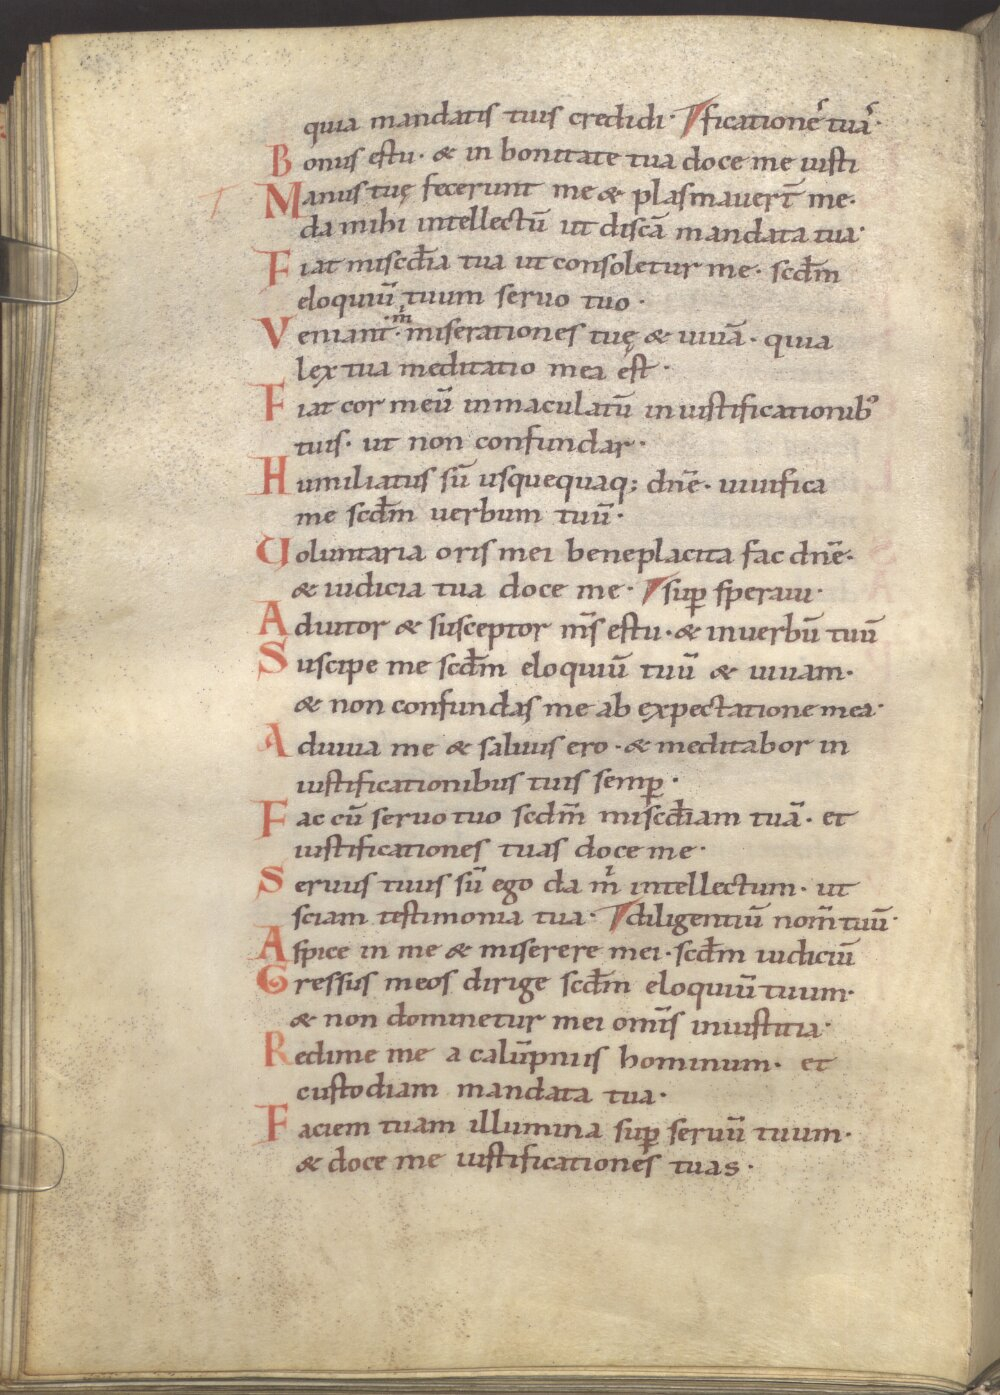 quia mandatis tuis credidi· ficationeˢ tuaˢ·
Bonus es tu· & in bonitate tua doce me iusti
Manus tuę fecerunt me & plasmauer̄t me·
da mihi intellectū ut discā mandata tua·
Fiat misc̄dia tua ut consoletur me· scd̄m
eloquiū tuum seruo tuo·
Veniant· m̊ miserationes tuę & uiuā· quia
lex tua meditatio mea est·
Fiat cor meū inmaculatū in iustificationib;
tuis· ut non confundar·
Humiliatus sū usquequaq; dn̄e· uiuifica
me scd̄m uerbum tuū·
Uoluntaria oris mei beneplacita fac dn̄e·
& iudicia tua doce me· sup̱ speraui·
Adiutor & susceptor m̄s es tu· & in uerbū tuū
Suscipe me scd̄m eloquiū tuū & uiuam·
& non confundas me ab expectatione mea·
Adiuua me & saluus ero· & meditabor in
iustificationibus tuis semp̱·
Fac cū seruo tuo scd̄m misc̄diam tuā· et
iustificationes tuas doce me·
Seruus tuus sū ego da m̊ intellectum· ut
sciam testimonia tua· diligentiū nom̄ tuū·
Aspice in me & miserere mei· scd̄m iudiciū
Gressus meos dirige scd̄m eloquiū tuum·
& non dominetur mei om̄is iniustitia·
Redime me a calūpniis hominum· et
custodiam mandata tua·
Faciem tuam illumina sup̱ seruū tuum·
& doce me iustificationes tuas·